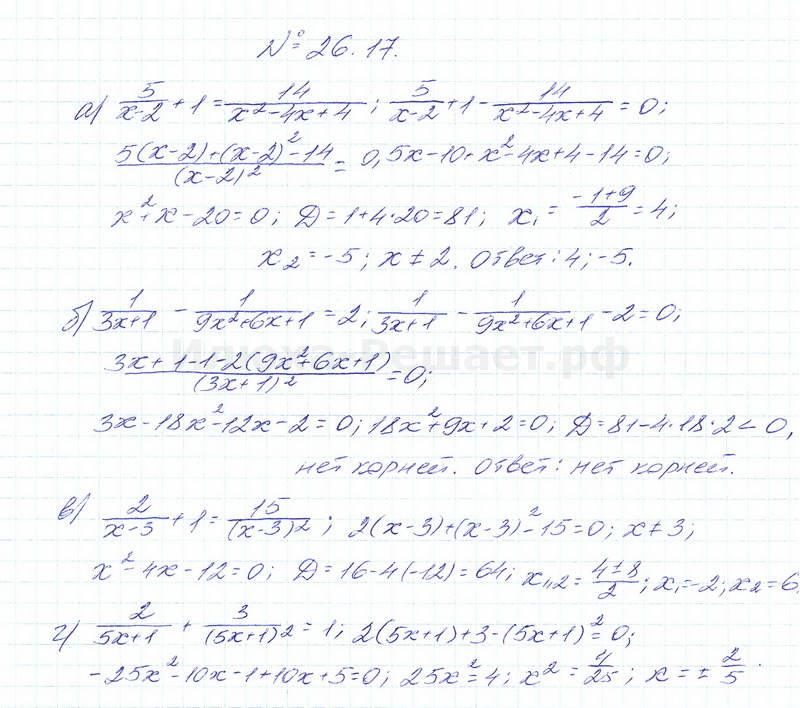 № 26.17.
а) 5/(x-2) + 1 = 14/(x²-4x+4); 5/(x-2) + 1 - 14/(x²-4x+4) = 0;
(5(x-2)+(x-2)²-14)/(x-2)² = 0, 5x-10+x²-4x+4-14=0;
x²+x-20=0; D=1+4·20=81; x₁ = (-1+9)/2 = 4;
x₂ = -5; x ≠ 2. Ответ: 4; -5.
б) 1/(3x+1) - 1/(9x²+6x+1) = 2; 1/(3x+1) - 1/(9x²+6x+1) - 2 = 0;
Илюха-Решает.рф
(3x+1-1-2(9x²+6x+1))/(3x+1)² = 0;
3x-18x²-12x-2=0; 18x²+9x+2=0; D=81-4·18·2<0,
нет корней. Ответ: нет корней.
в) 2/(x-3) + 1 = 15/(x-3)²; 2(x-3)+(x-3)²-15=0; x≠3;
x²-4x-12=0; D=16-4(-12)=64; x₁,₂ = (4±8)/2; x₁=-2; x₂=6.
г) 2/(5x+1) + 3/(5x+1)² = 1; 2(5x+1)+3-(5x+1)²=0;
-25x²-10x-1+10x+5=0; 25x²=4; x² = 4/25; x = ± 2/5.